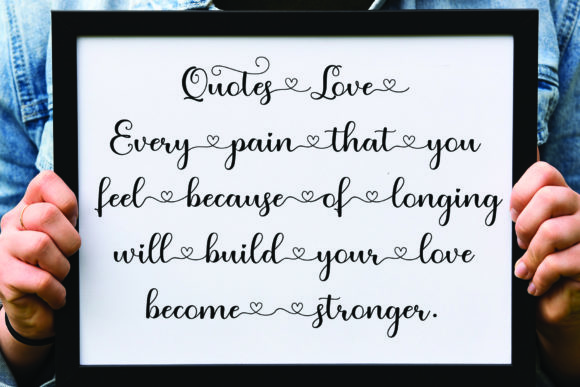 Quotes Love
Every pain that you
feel because of longing
will build your love
become stronger.